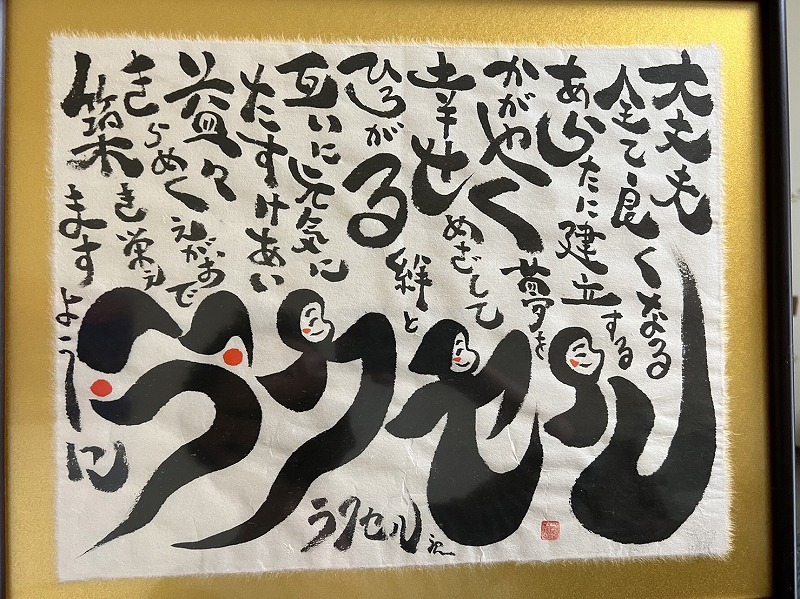 大丈夫
全て良くなる
あらたに建立する
かがやく夢を
めざして
幸せ
ひろがる絆と
互いに元気に
たすけあい
益々えがおで
きらめく栄え
築きますように
ラクセル
ラクセル